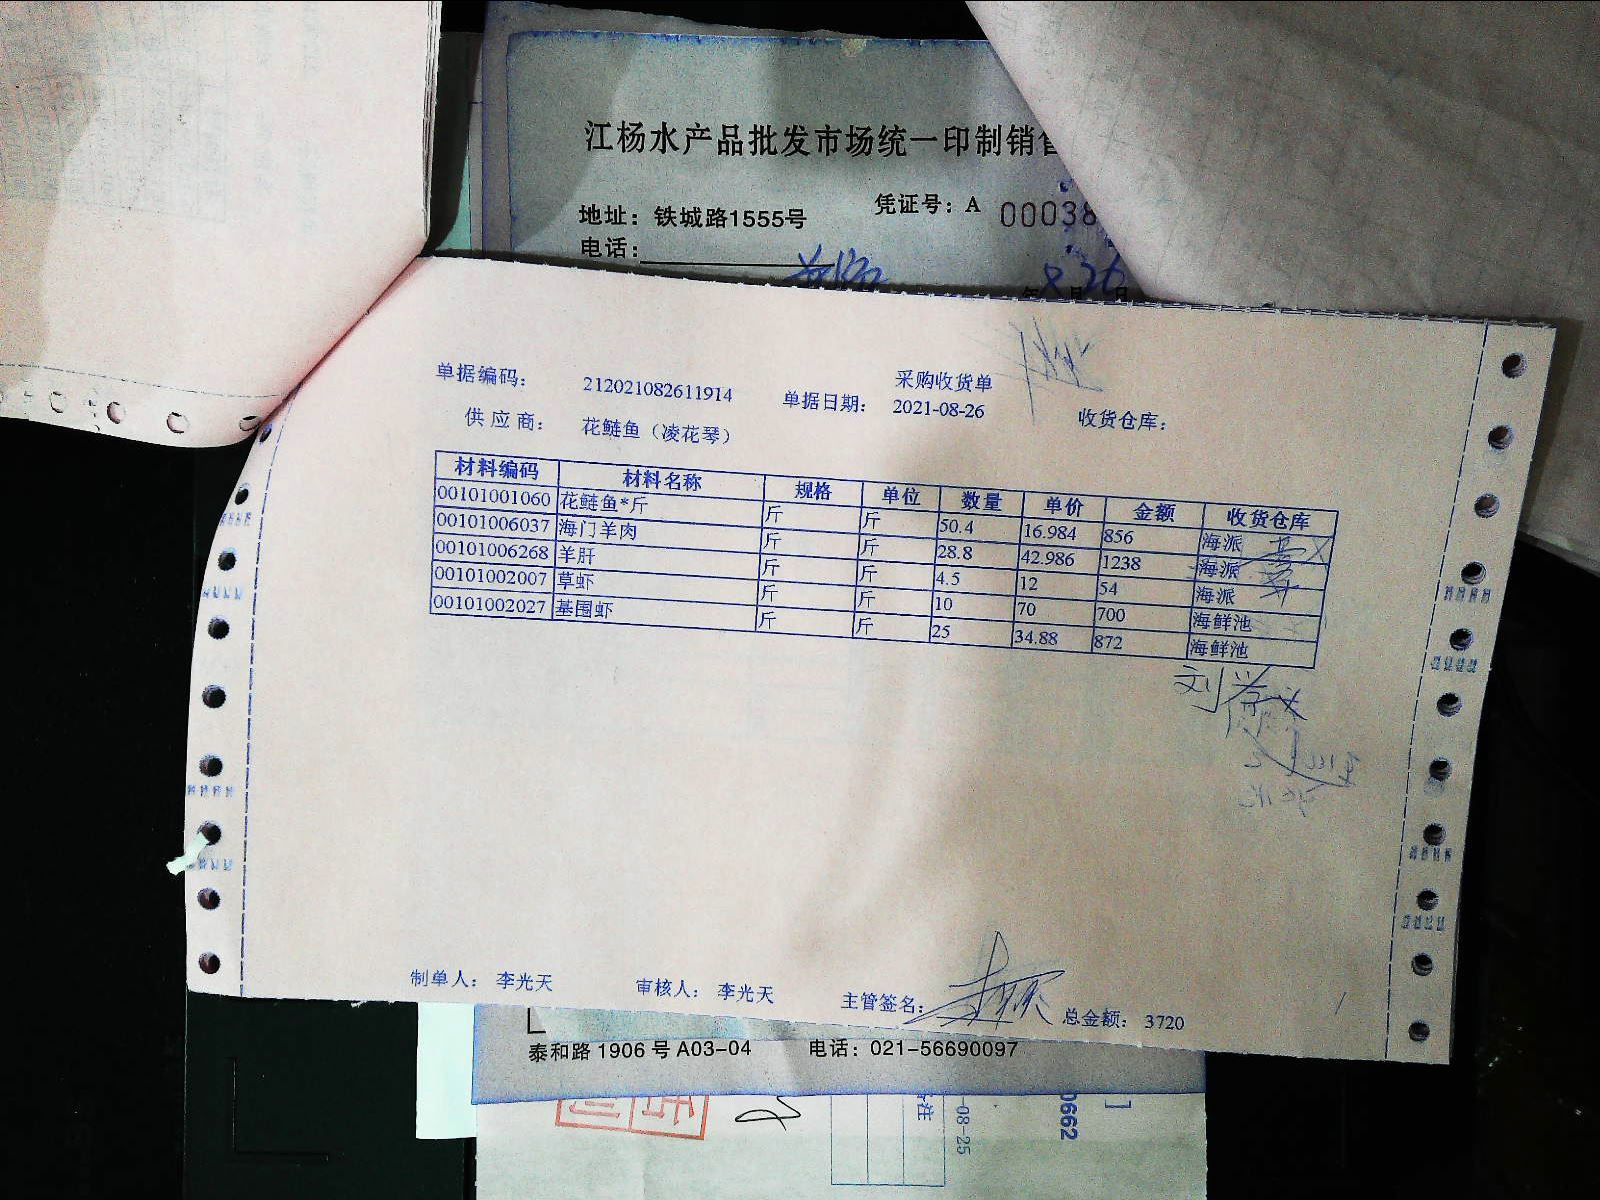 江杨水产品批发市场统一印制销售
地址：铁城路1555号 凭证号：A 00038
电话：
8月26日
采购收货单
单据编码： 212021082611914 单据日期： 2021-08-26 收货仓库：
供应商： 花鲢鱼（凌花琴）
材料编码 材料名称 规格 单位 数量 单价 金额 收货仓库
00101001060 花鲢鱼*斤 斤 斤 50.4 16.984 856 海派
00101006037 海门羊肉 斤 斤 28.8 42.986 1238 海派
00101006268 羊肝 斤 斤 4.5 12 54 海派
00101002007 草虾 斤 斤 10 70 700 海鲜池
00101002027 基围虾 斤 斤 25 34.88 872 海鲜池
制单人： 李光天 审核人： 李光天 主管签名： 总金额： 3720
泰和路1906号A03-04 电话：021-56690097
-08-25
0662